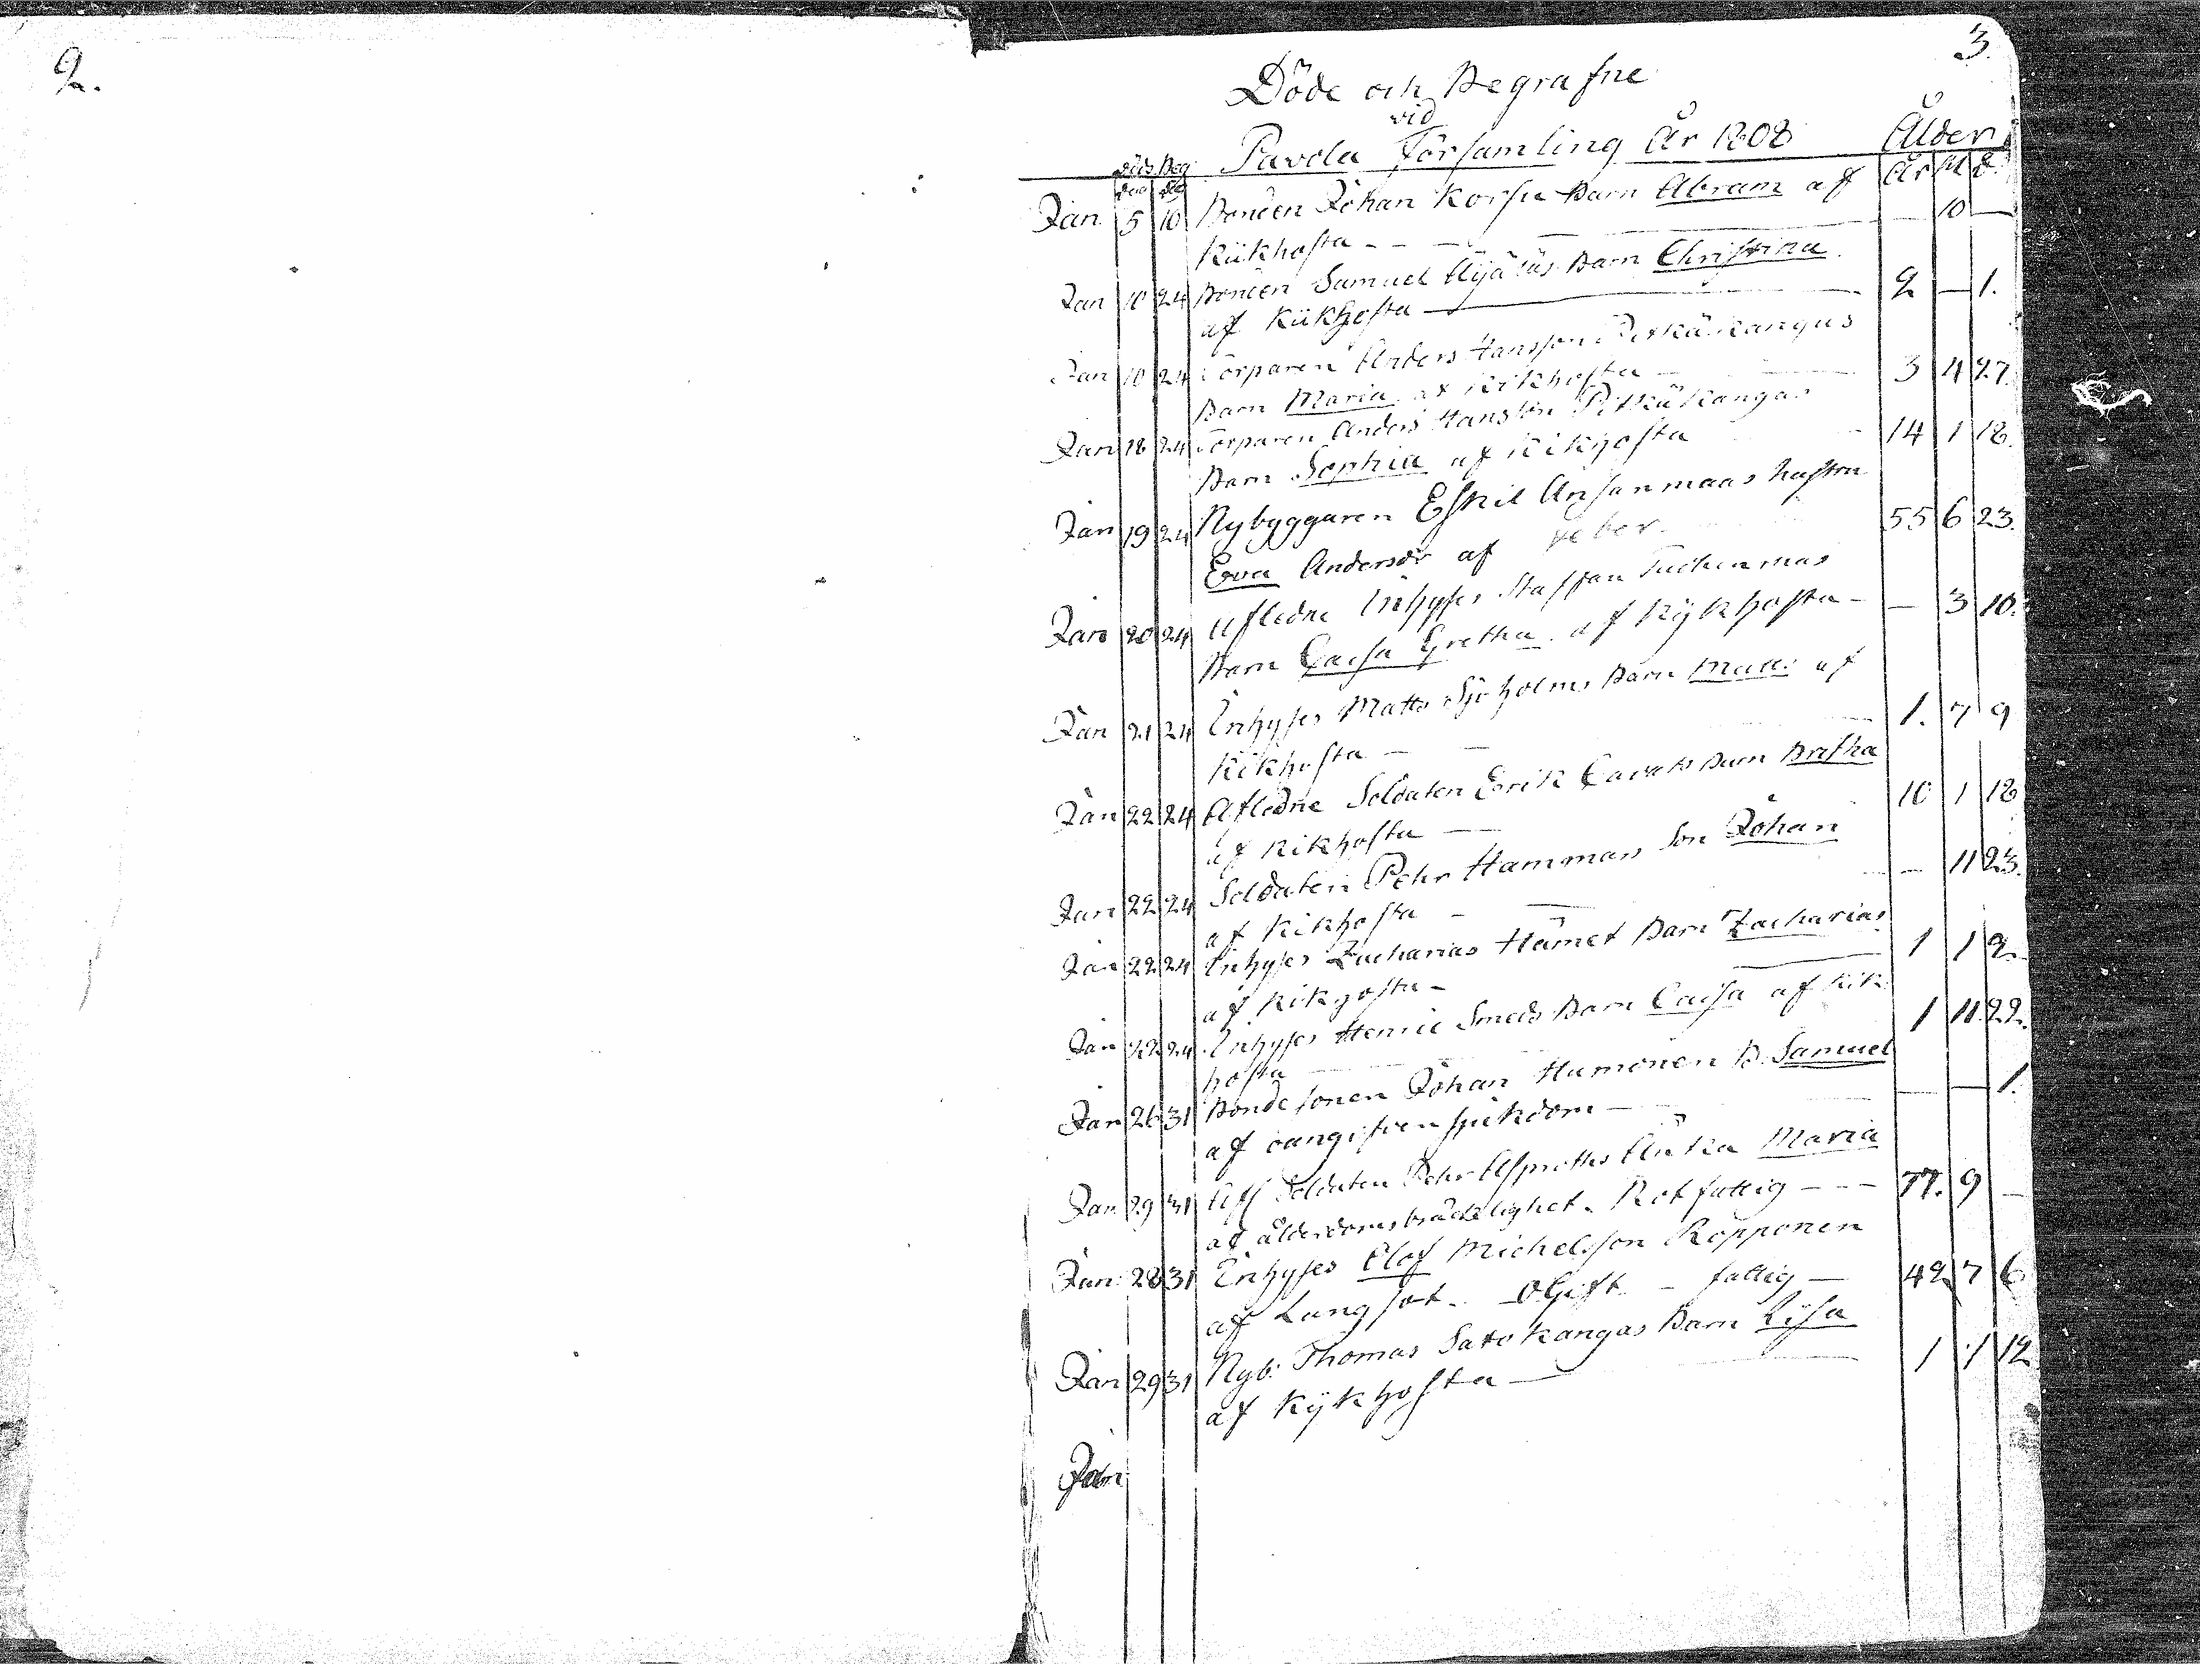 2.
3.
Döde och Begrafne
vid
Pavola Församling År 1808 Ålder
döds Beg
dag dag År M d.
Jan 5 10 Bonden Johan Korsu Barn Abram af — 10 —
Kikhosta
Jan 10 24 Bonden Samuel Barn Christina 2 — 1.
af Kikhosta
Jan 10 24 Torparen Anders Hansson Pitkäkangas 3 4 27.
Barn Maria af Kikhosta
Jan 18 24 Torparen Anders Hansson Pitkäkangas 14 1 18.
Barn Sophia af Kikhosta
Jan 19 24 Nybyggaren Eskil Ansanmaas hustru 55 6 23.
Eva Andersdr af feber.
Jan 20 24 Afledne Inhyses Staffan — 3 10.
Barn Caisa Gretha af Kykhosta
Jan 21 24 Inhyses Matts Sjöholms Barn Matts af 1. 7 9
Kikhosta
Jan 22 24 Afledne Soldaten Erik Barn Britha 10 1 18
af Kikhosta
Jan 22 24 Soldaten Pehr Hammars Son Johan — 11 23.
af Kikhosta
Jan 22 24 Inhyses Zacharias Barn Zacharias 1 1 2
af Kikhosta
Jan 22 24 Inhyses Henric Smeds Barn Caisa af Kik 1 11 22.
hosta
Jan 26 31 Bondesonen Johan Hamonen B. Samuel — — 1.
af oangifven sjukdom
Jan 29 31 Afl Soldaten Pehr Änka Maria 77. 9 —
af ålderdomsbräcklighet. Rotfattig
Jan 28 31 Inhyses Olof Michelsson Ropponen 42 7 6
af Lungsot. Ogift — fattig
Jan 29 31 Nyb. Thomas Satokangas Barn Lisa 1 1 12
af Kykhosta
Jan